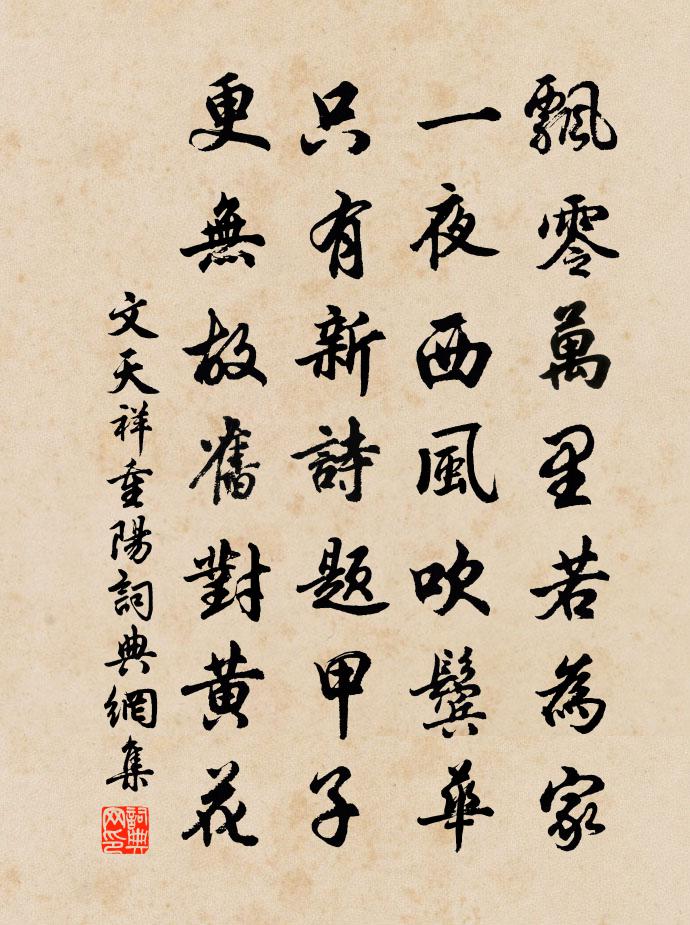 飄零萬里若為家
一夜西風吹鬓華
只有新詩題甲子
更無故舊對黃花
文天祥重陽詞典網集
詞典网印